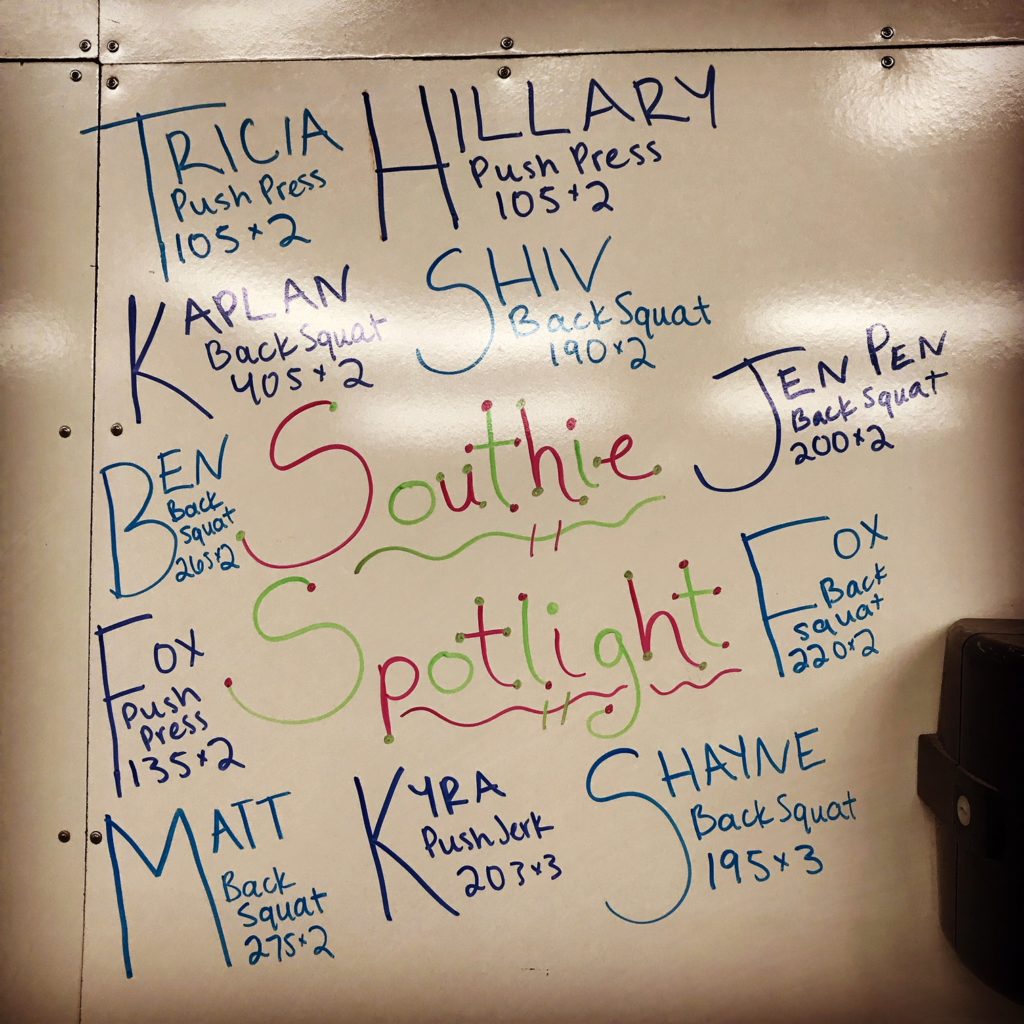 TRICIA
Push Press
105x2
HILLARY
Push Press
105x2
KAPLAN
Back Squat
405x2
SHIV
Back Squat
190x2
JEN PEN
Back Squat
200x2
BEN
Back
Squat
265x2
Southie
Spotlight
FOX
Back
squat
220x2
FOX
Push
Press
135x2
MATT
Back
Squat
275x2
KYRA
Push Jerk
203x3
SHAYNE
Back Squat
195x3